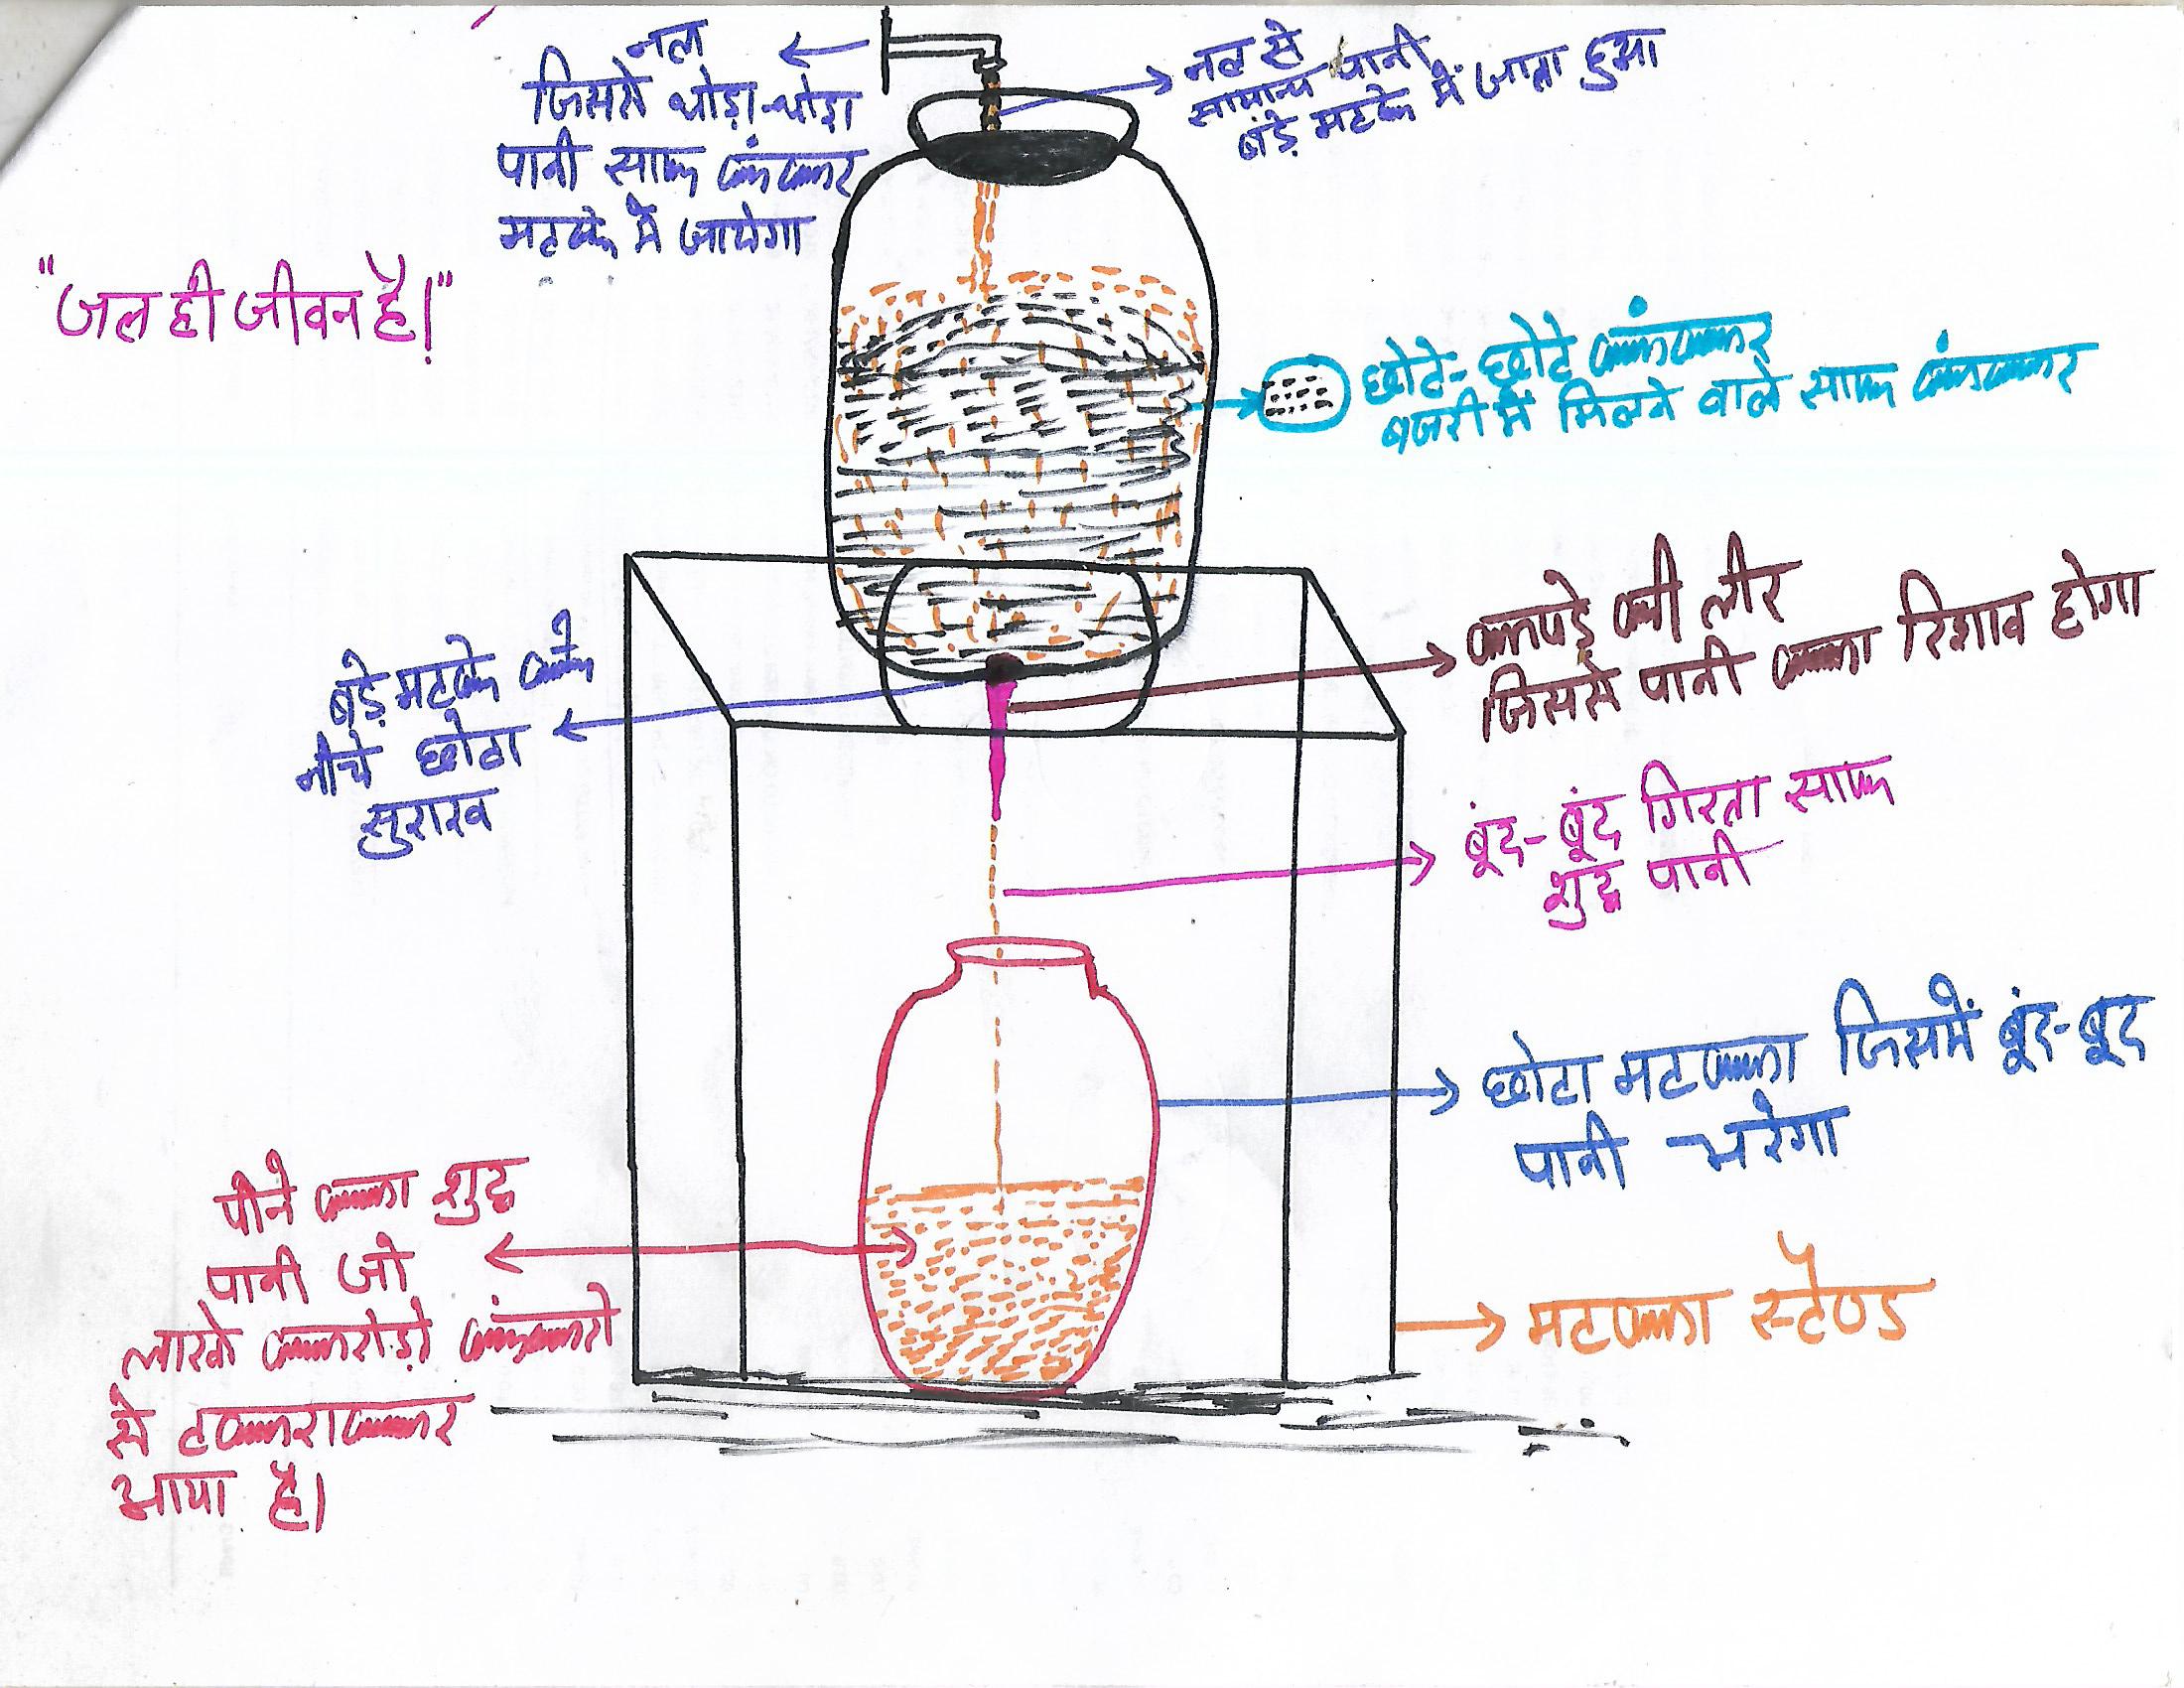 नल
जिससे थोड़ा-थोड़ा
पानी साफ कंकर
मटके में जायेगा
नल से
सामान्य पानी
बड़े मटके में जाता हुआ
"जल ही जीवन है।"
छोटे-छोटे कंकर
बजरी में मिलने वाले साफ कंकर
कपड़े की लीर
जिससे पानी का रिशाव होगा
बड़े मटके के
नीचे छोटा
सुराख
बूंद-बूंद गिरता साफ
शुद्ध पानी
छोटा मटका जिसमें बूंद-बूद
पानी भरेगा
पीने का शुद्ध
पानी जो
लाखो करोड़ो कंकरो
से टकराकर
आया है।
मटका स्टैण्ड